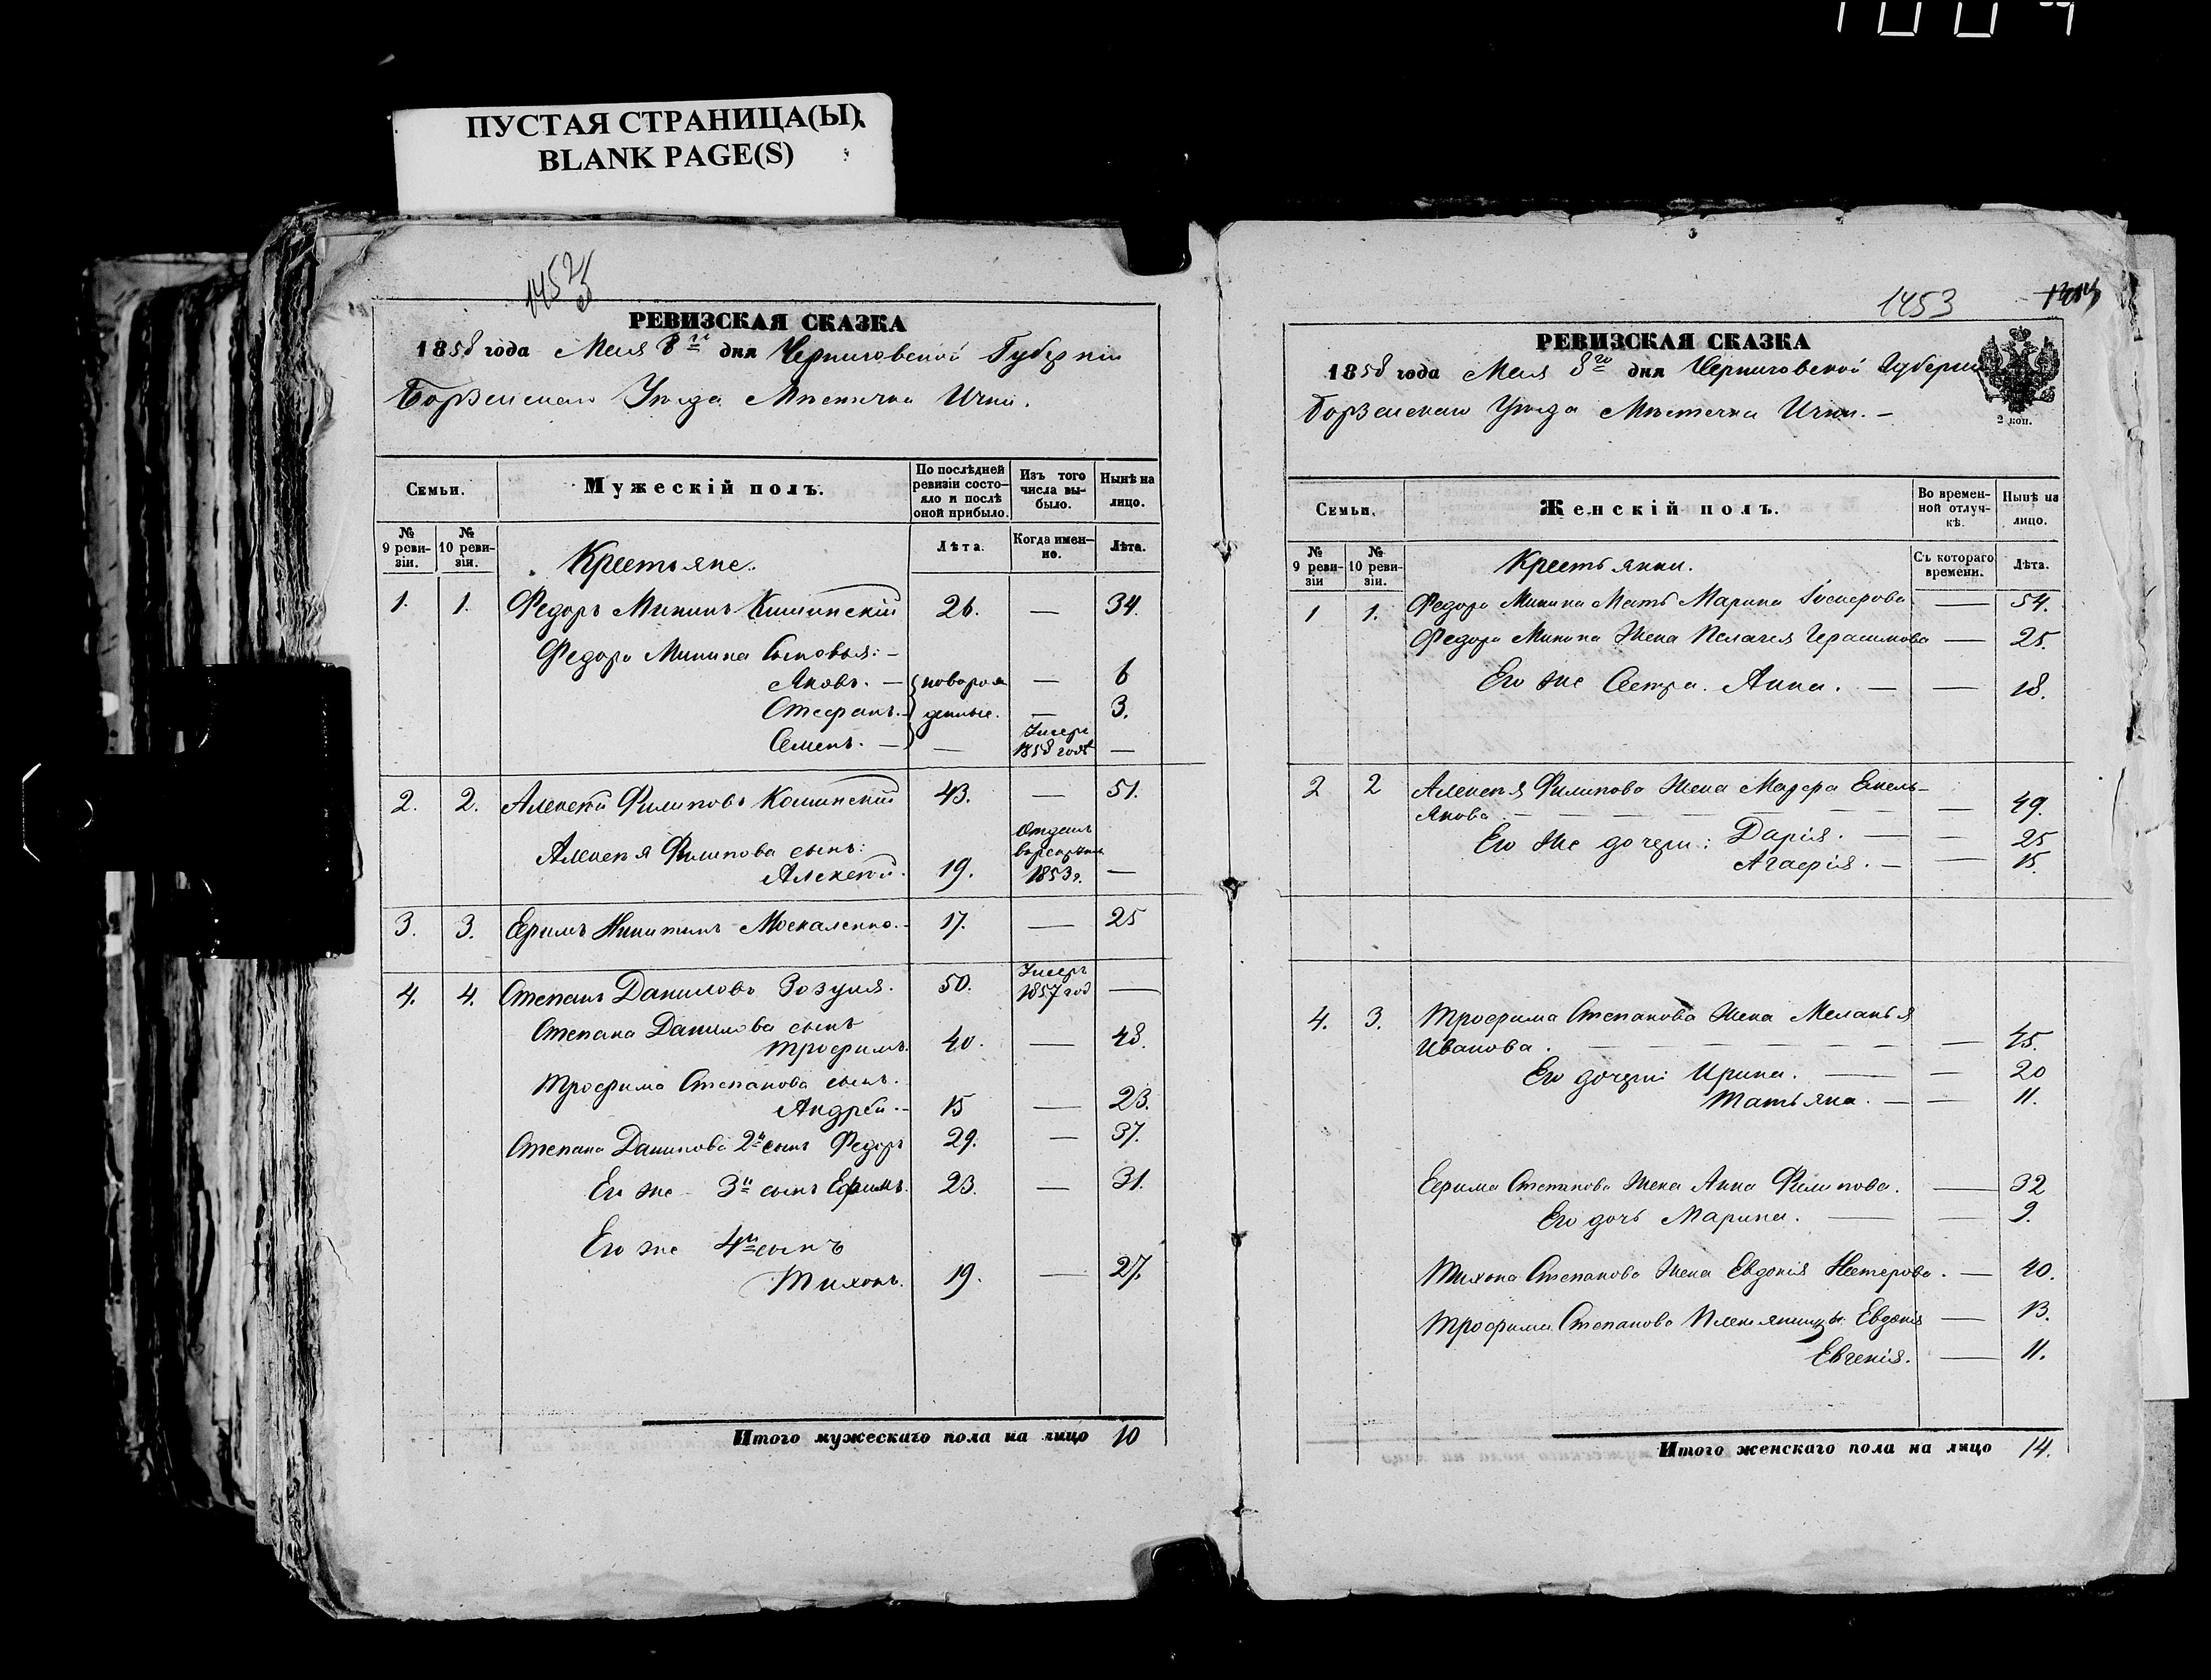 ПУСТАЯ СТРАНИЦА(Ы)
BLANK PAGE(S)
1452
РЕВИЗСКАЯ СКАЗКА
1858 года Мая 8го дня Черниговской Губерніи
Борзенскаго Уѣзда Мѣстечка Ични.
Семьи.
Мужескій полъ.
По послѣдней ревизіи состояло и послѣ оной прибыло.
Изъ того числа выбыло.
Нынѣ на лицо.
№ 9 ревизіи.
№ 10 ревизіи.
Крестьяне.
Лѣта.
Когда именно.
Лѣта.
1. 1. Федоръ Мининъ 26. — 34.
Федора Минина Сыновья: —
Яковъ. — новорож — 6
Стефанъ. — денные. — 3.
Семенъ. — — 1858 года —
2. 2. Алексѣй Филиповъ Кошинскій 43. — 51.
Алексѣя Филипова сынъ:
Алексѣй. 19. 1853 г. —
3. 3. Ефимъ Никитинъ Москаленко. 17. — 25
4. 4. Степанъ Даниловъ Зозуля. 50. Умеръ 1857 год —
Степана Данилова сынъ
Трофимъ. 40. — 48.
Трофима Степанова сынъ.
Андрей. — 15 — 23.
Степана Данилова 2й сынъ Федоръ 29. — 37.
Его же 3й сынъ Ефимъ. 23. — 31.
Его же 4й сынъ
Тихонъ. 19. — 27.
Итого мужескаго пола на лицо 10
1453
РЕВИЗСКАЯ СКАЗКА
1858 года Мая 8го дня Черниговской Губерніи
Борзенскаго Уѣзда Мѣстечка Ични. —
2 коп.
Семьи.
Женскій полъ.
Во временной отлучкѣ.
Нынѣ на лицо.
№ 9 ревизіи
№ 10 ревизіи.
Крестьянки.
Съ котораго времени.
Лѣта.
1 1. Федора Минина Мать Марина — 54.
Федора Минина Жена Пелагея Герасимова — 25.
Его же Сестра Анна. — — 18.
2 2 Алексѣя Филипова Жена Емель-
янова — — 49.
Его же дочери: Дарія. — — 25
Агафія. — — 15.
4. 3. Трофима Степанова Жена Меланья
Иванова. — — 45.
Его дочери: Ирина. — — 20
Татьяна. — — 11.
Ефима Степанова Жена Анна Филипова. — 32
Его дочь Марина. — — 9.
Тихона Степанова Жена Евдокія Нестерова. — 40.
Трофима Степанова Племянницы: Евдокія — 13.
Евгенія. — 11.
Итого женскаго пола на лицо 14.